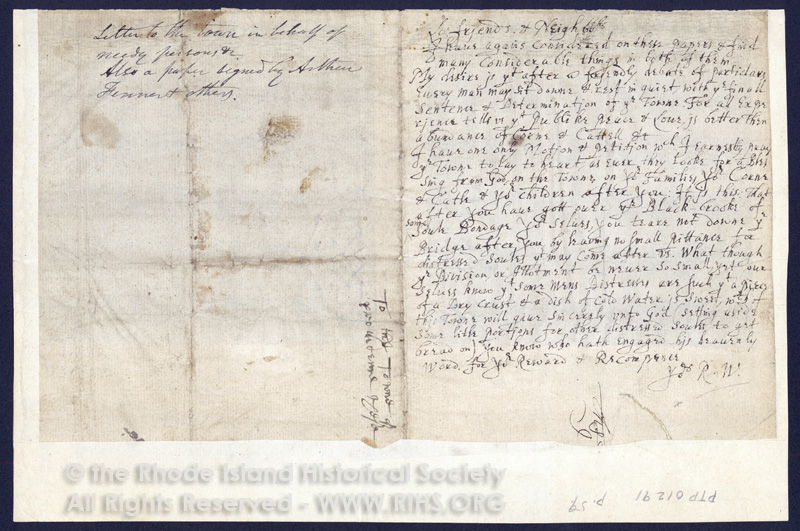 Letter to the town in behalf of
needy persons &c
Also a paper signed by Arthur
Fenner & others.
Lo: friends, & Neighbors
I haue againe Considered on these papers & find
many Considerable things in both of them
My desire is yt after a friendly debate of particulars
Euery man may sit downe & rest in quiet with ye finall
Sentence & Determination of ye Towne For all Expe
rience tells us yt Publike Peace & Loue is better then
abundance of Corne & Cattell &c
I haue one only Motion & petition wch I earnestly pray
ye Towne to lay to heart as euer they looke for a bles
sing from God on the Towne, on yor Families yor Corne
& Catle & yor Children after you: It is this: That
after you haue gott ouer ye Black brooke of
some
Soule Bondage yor Selues, you teare not downe ye
Bridge after you by leauing no small Pittance for
distressed Soules yt may Come after You. What though
ye Division or Allotment be neuer so small yet your
Selues know yt some mens Distresses are such yt a piece
of a Dry Crust & a dish of Cold Water is sweet, wch if
this Towne will giue Sincerely unto God setting aside
some litle portions for other distressed Soules to get
bread on) You know who hath engaged his heauenly
Word for yor Reward & Recompence
Yors R. W:
To the Towne of
PTP 012 91
p. 59
© the Rhode Island Historical Society
All Rights Reserved - WWW.RIHS.ORG